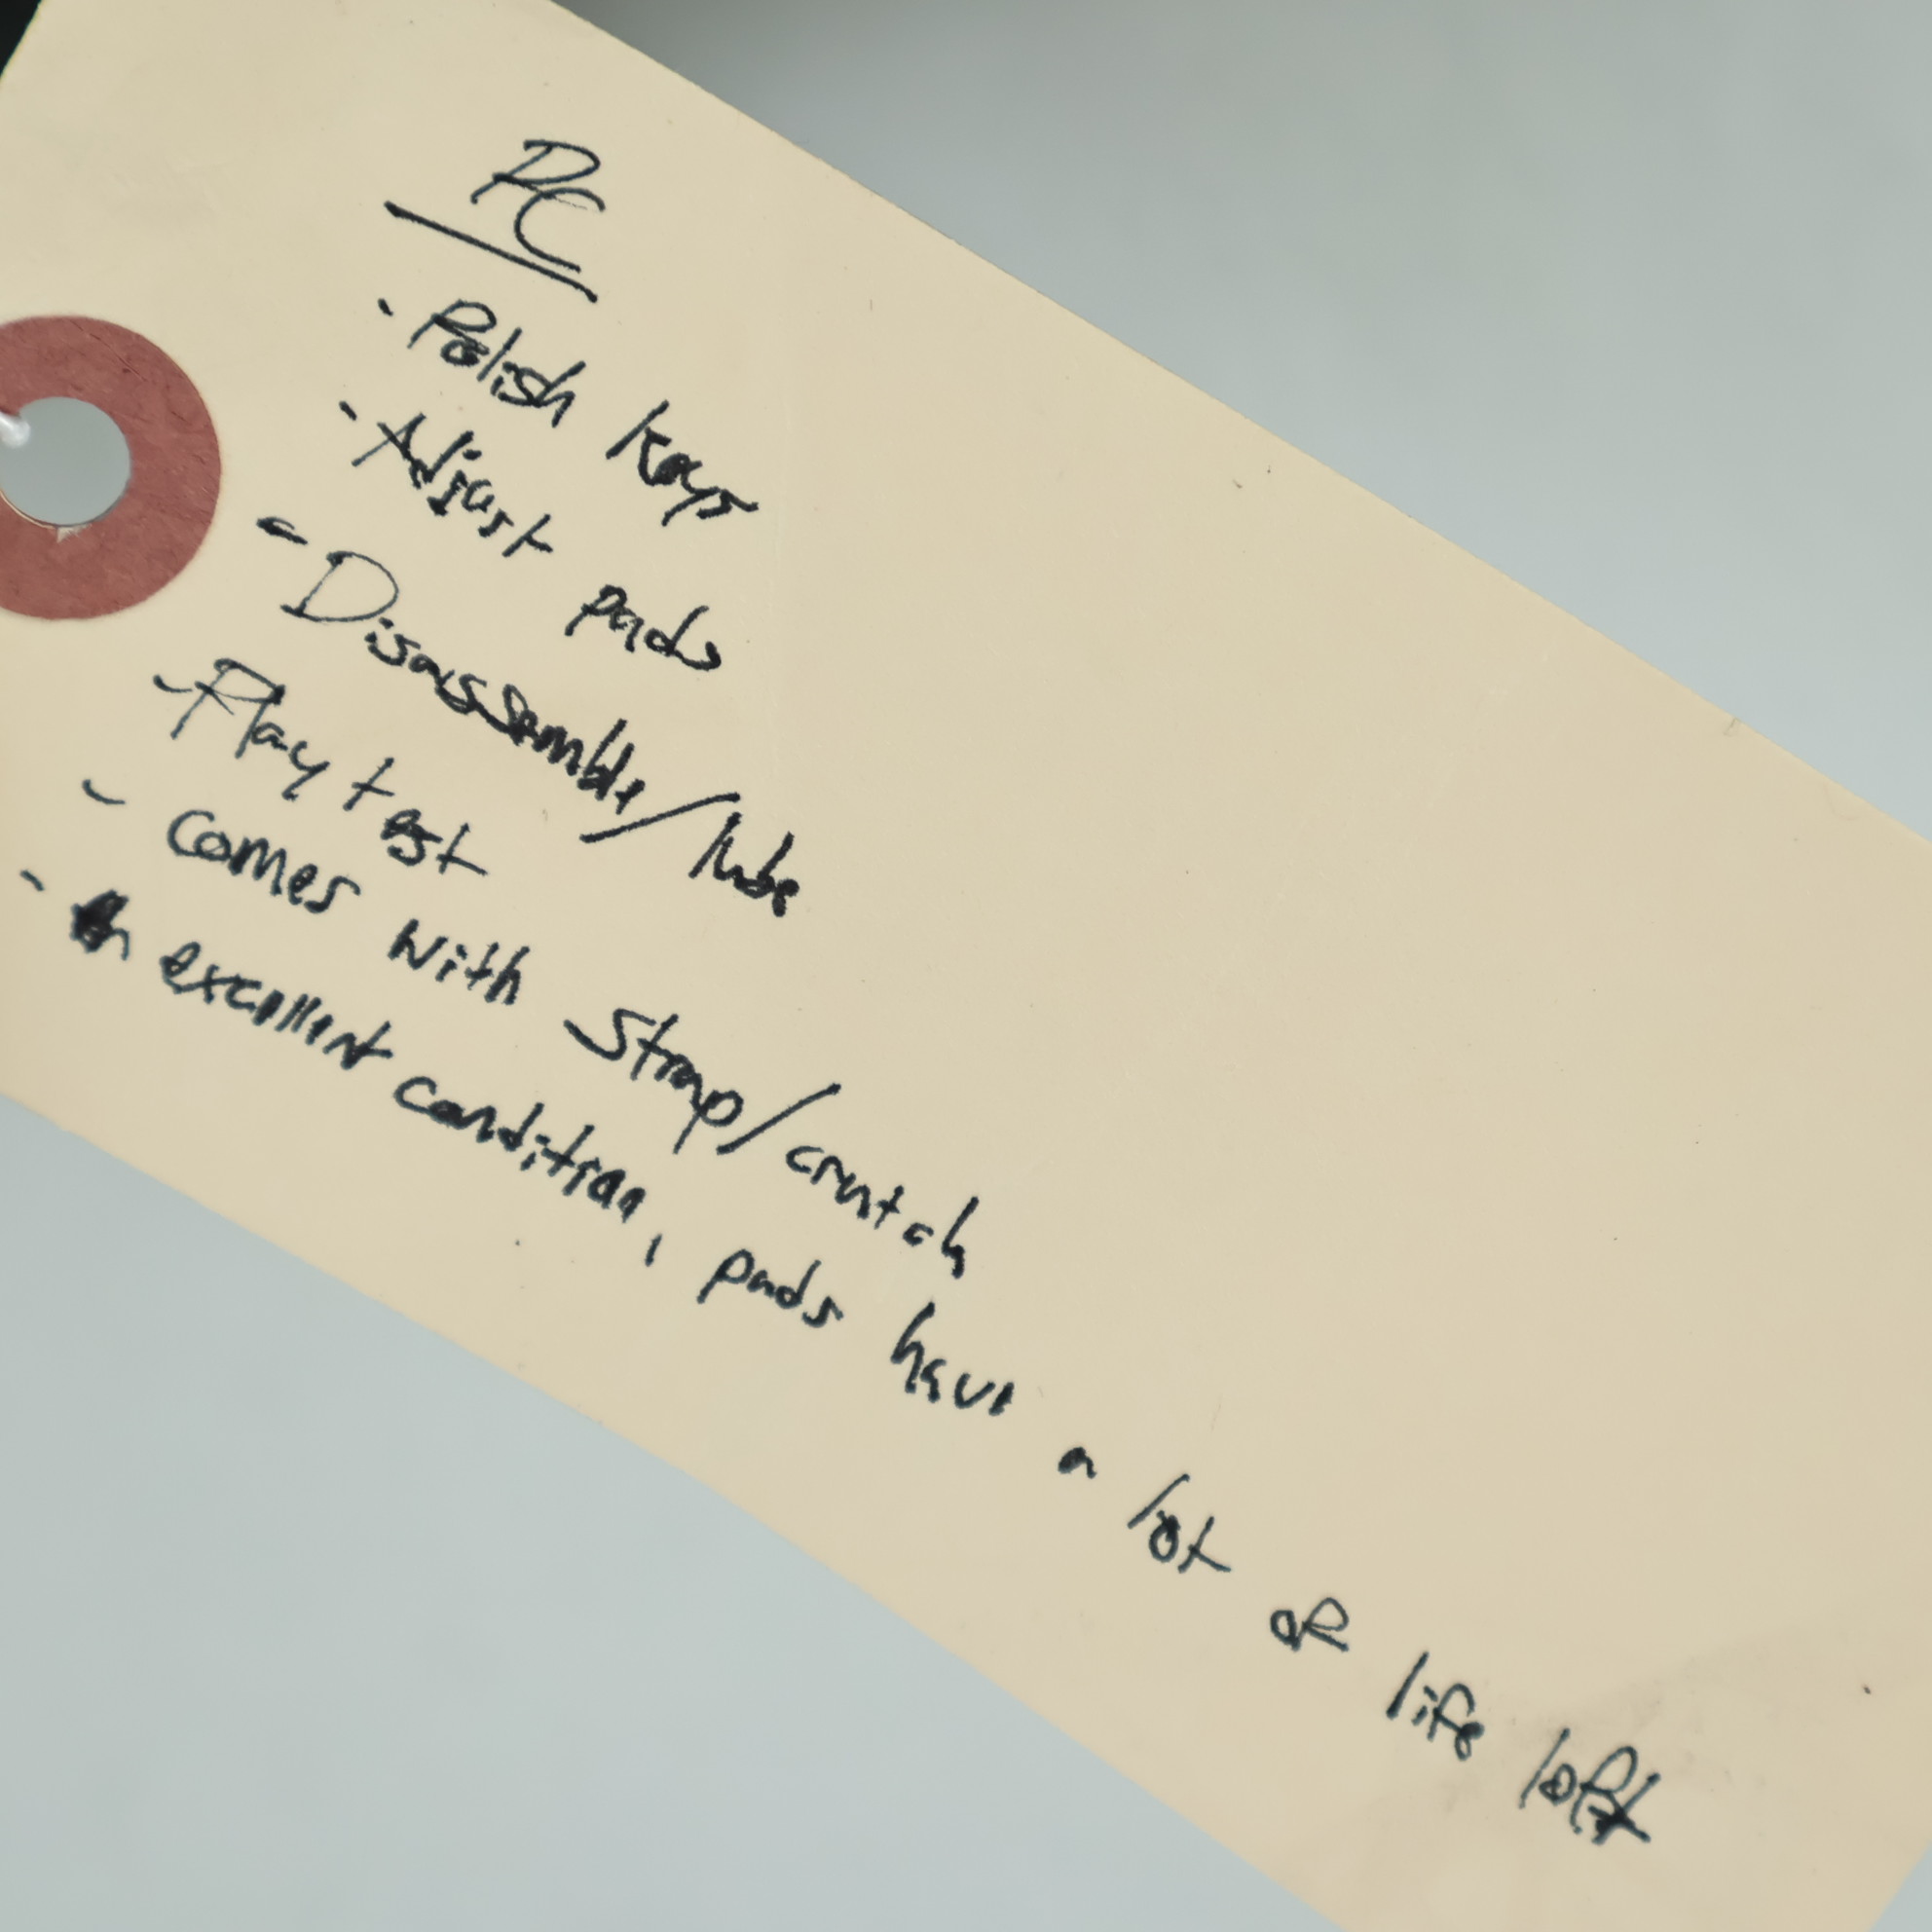 PC
- Polish keys
- Adjust pads
- Disassemble/lube
- Play test
- comes with strap/crutch
- in excellent condition, pads have a lot of life left